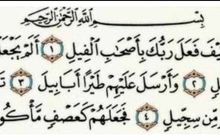 بِسْمِ اللَّهِ الرَّحْمَٰنِ الرَّحِيمِ
يْفَ فَعَلَ رَبُّكَ بِأَصْحَابِ الْفِيلِ ١ أَلَمْ يَجْعَلْ
٢ وَأَرْسَلَ عَلَيْهِمْ طَيْرًا أَبَابِيلَ ٣
مِّن سِجِّيلٍ ٤ فَجَعَلَهُمْ كَعَصْفٍ مَّأْكُو